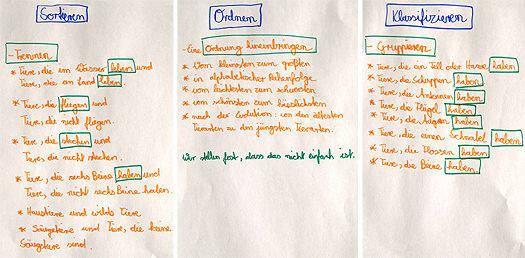 Sortieren
- Trennen
* Tiere, die im Wasser leben und
Tiere, die an Land leben.
* Tiere, die fliegen und
Tiere, die nicht fliegen.
* Tiere, die stechen und
Tiere, die nicht stechen.
* Tiere, die sechs Beine haben und
Tiere, die nicht sechs Beine haben.
* Haustiere und wilde Tiere
* Säugetiere und Tiere, die keine
Säugetiere sind.
Ordnen
- Eine Ordnung hineinbringen
* Vom kleinsten zum größten
* in alphabetischer Reihenfolge
* vom leichtesten zum schwersten
* vom schönsten zum hässlichsten
* nach der Evolution: von den ältesten
Tierarten zu den jüngsten Tierarten.
Wir stellen fest, dass das nicht einfach ist.
Klassifizieren
- Gruppieren
* Tiere, die ein Fell oder Haare haben
* Tiere, die Schuppen haben
* Tiere, die Antennen haben
* Tiere, die Flügel haben
* Tiere, die haben
* Tiere, die einen Schnabel haben
* Tiere, die Flossen haben
* Tiere, die Beine haben